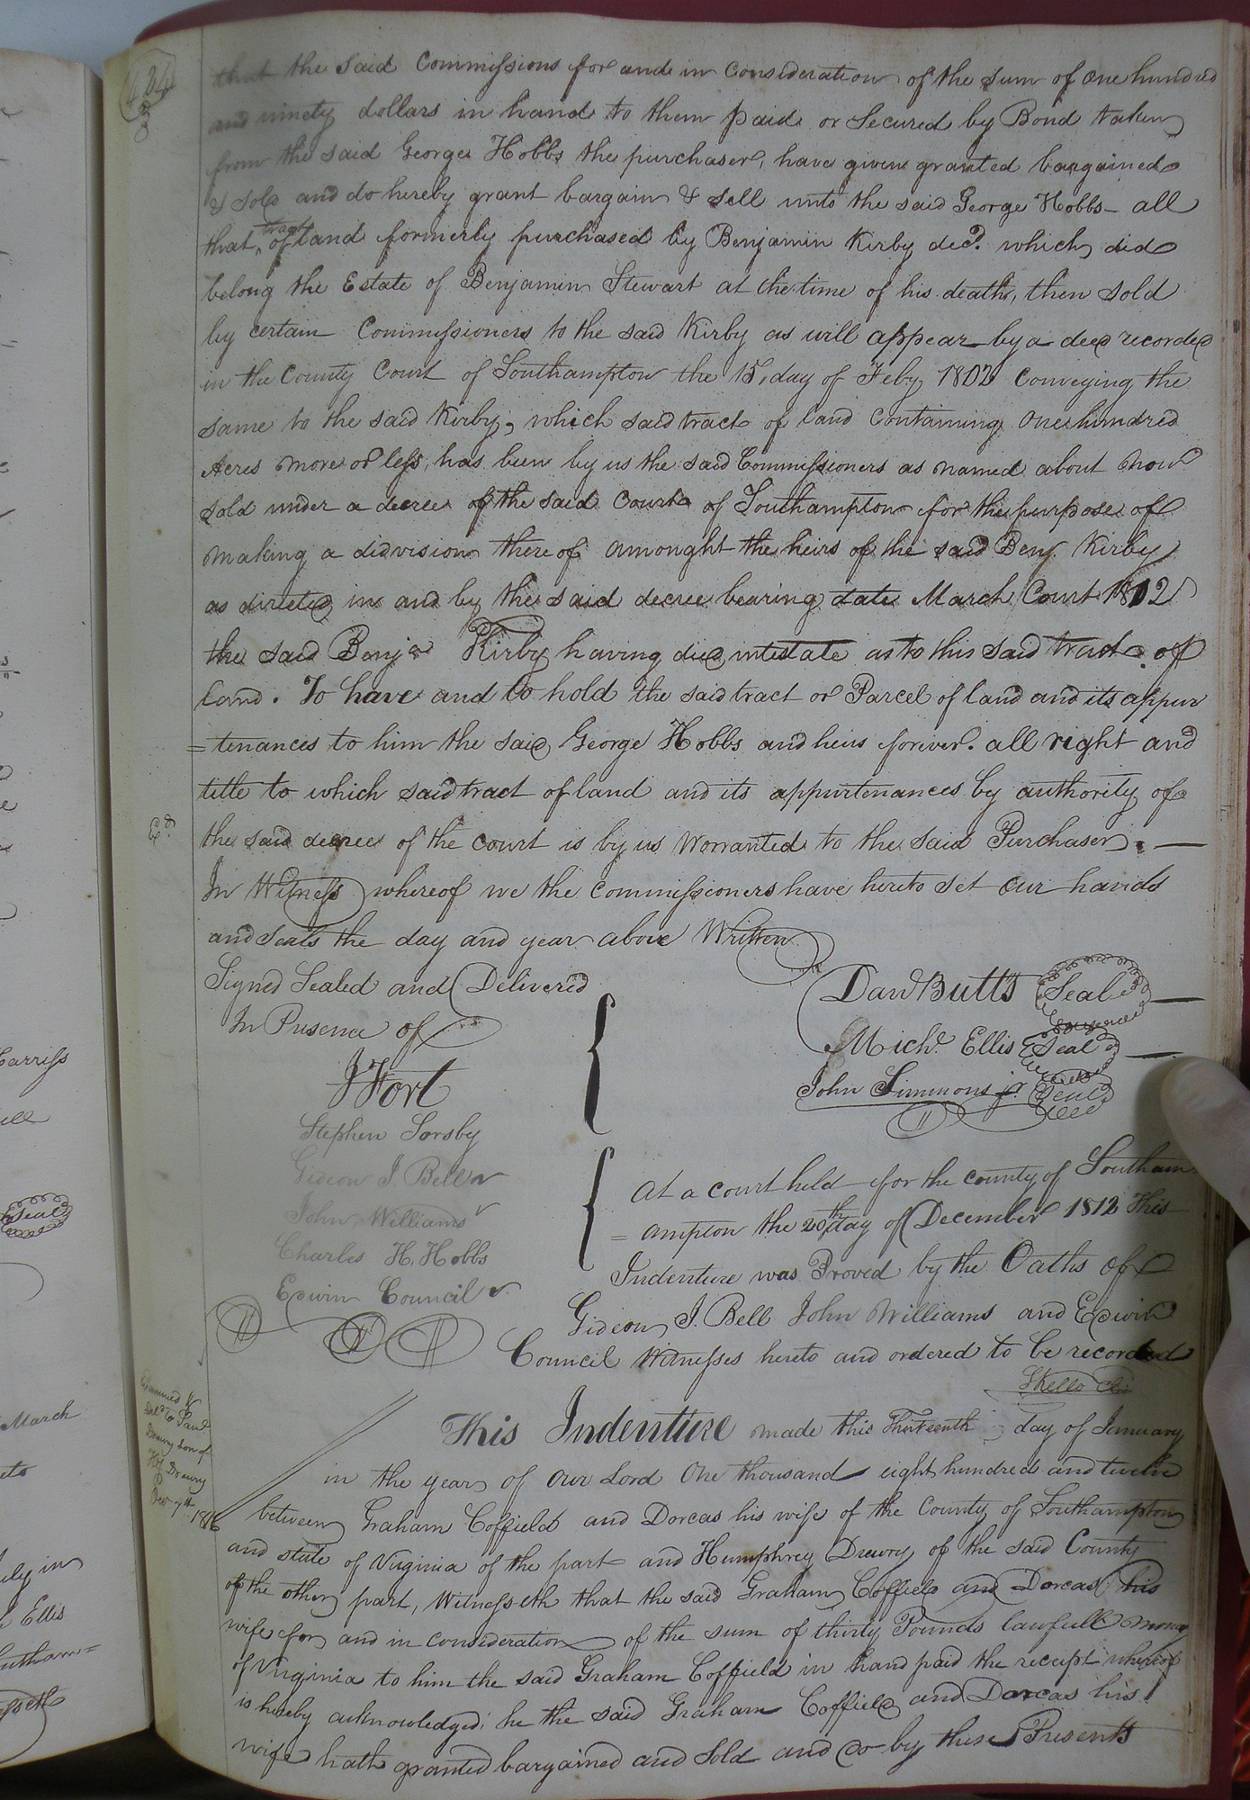 424
that the said Commissions for and in Consideration of the sum of one hundred
and ninety dollars in hand to them paid or Secured by Bond taken
from the said George Hobbs the purchaser, have given granted bargained
& sold and do hereby grant bargain & sell unto the said George Hobbs all
that tract of land formerly purchased by Benjamin Kirby decd. which did
belong the Estate of Benjamin Stewart at the time of his death, then sold
by certain Commissioners to the said Kirby as will appear by a deed recorded
in the County Court of Southampton the 15, day of Feby 1802 Conveying the
same to the said Kirby, which said tract of land Containing One hundred
Acres more or less, has been by us the said Commissioners as named about now
sold under a decree of the said Court of Southampton for the purpose of
making a didvision there of amonght the heirs of the said Benj. Kirby
as directed in and by the said decree bearing date March Court 1812
the said Benja Kirby having died intestate as to this said tract of
land. To have and to hold the said tract or Parcel of land and its appur
=tenances to him the said George Hobbs and heirs forever. all right and
title to which said tract of land and its appurtenances by authority of
Ed
the said decree of the court is by us Worranted to the said Purchaser. —
In Witness whereof we the commissioners have hereto set our hands
and Seals the day and year above Written
Signed Sealed and Delivered
In Presence of
Dawd Butts Seal
Michl. Ellis Seal
John Simmons jr. Seal
J Fort
Stephen Sorsby
Gideon J. Bell
John Williams
Charles H. Hobbs
Edwin Council
At a court held for the county of Southam
=ampton the 20th day of December 1812 This
Indenture was Proved by the Oaths of
Gideon J. Bell John Williams and Edwin
Council Witnesses hereto and ordered to be recorded
SKello Clk
Examined &
Deld. to Saml
Drewry son of
Drewry
7th 1816
This Indenture made this Thirteenth day of January
in the year of our Lord One thousand eight hundred and twelve
between Graham Coffield and Dorcas his wife of the County of Southampton
and state of Virginia of the part and Humphrey Drewry of the said County
of the other part, Witnesseth that the said Graham Coffield and Dorcas his
wife for and in consideration of the sum of thirty Pounds lawfull money
of Virginia to him the said Graham Coffield in hand paid the receipt whereof
is hereby acknowledged; he the said Graham Coffield and Dorcas his
wife hath granted bargained and Sold and do by these Presents
Carriss
Seal
March
Ellis